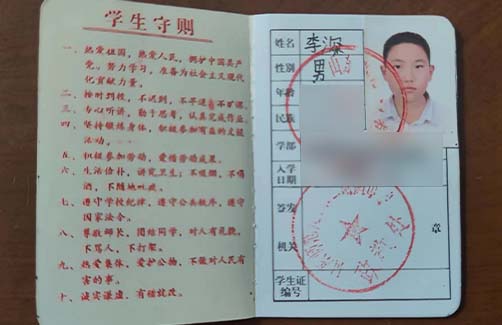 学生守则
一、热爱祖国，热爱人民，拥护中国共产
党。努力学习，准备为社会主义现代
化贡献力量。
二、按时到校，不迟到，不早退，不旷课。
三、专心听讲，勤于思考，认真完成作业。
四、坚持锻炼身体，积极参加有益的文娱
活动。
五、积极参加劳动，爱惜劳动成果。
六、生活俭朴，讲究卫生，不吸烟，不喝
酒，不随地吐痰。
七、遵守学校纪律，遵守公共秩序，遵守
国家法令。
八、尊敬师长，团结同学，对人有礼貌，
不骂人，不打架。
九、热爱集体，爱护公物，不做对人民有
害的事。
十、诚实谦虚，有错就改。
姓名 李深
性别 男
年龄
民族
学部
入学
日期
签发
机关
章
学生证
编号